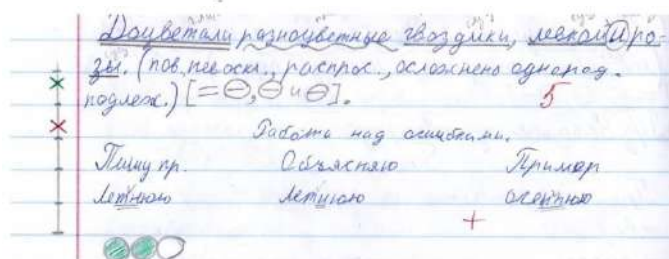 Доцветали разноцветные гвоздики, левкой и ро-
зы. (пов., невоскл., распрос., осложнено однород.
подлеж.) [= ⊖, ⊖ и ⊖]. 5
Работа над ошибками.
Пишу пр. Объясняю Пример
Летнюю осеннюю
+